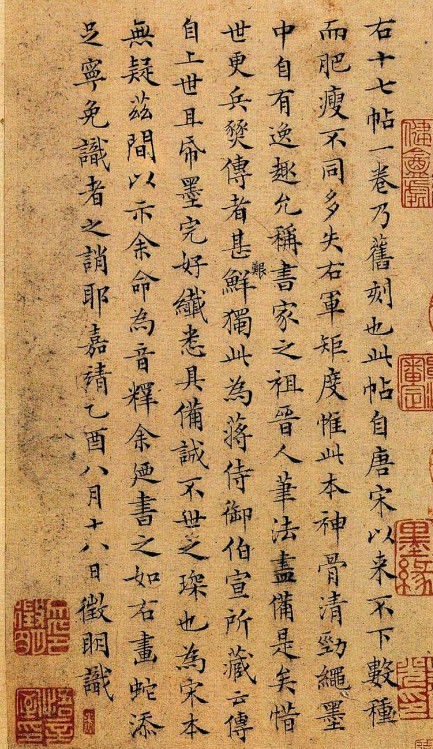 右十七帖一卷乃舊刻也此帖自唐宋以来不下數種
而肥瘦不同多失右軍矩度惟此本神骨清勁繩墨
中自有逸趣允稱書家之祖晉人筆法盡備是矣惜
世更兵燹傳者甚鮮獨此為蒋侍御伯宣所藏云傳
艱
自上世且帋墨完好纖悉具備誠不世之琛也為宋本
無疑茲間以示余命為音釋余廼書之如右畫蛇添
足寧免識者之誚耶嘉靖乙酉八月十八日徵明識
墨緣